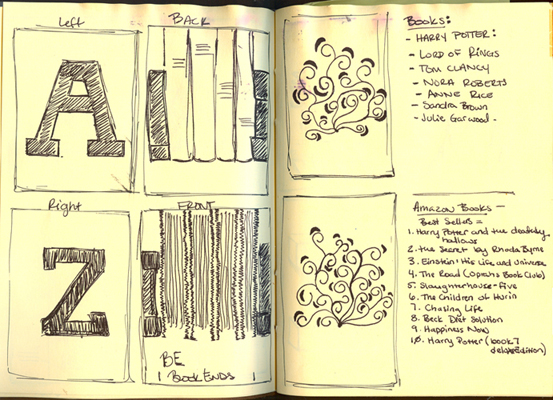 Left
BACK
A
Right
FRONT
Z
BE
BOOKENDS
BOOKS:
- HARRY POTTER:
- LORD OF RINGS
- TOM CLANCY
- NORA ROBERTS
- ANNE RICE
- Sandra Brown
- Julie Garwood -
Amazon Books -
Best Sellers =
1. Harry Potter and the deathly
hallows
2. the Secret by Rhoda Byrne
3. Einstein: His Life and Universe
4. The Road (Oprah's Book Club)
5. Slaughterhouse-Five
6. The Children of Hurin
7. Chasing Life
8. Beck Diet Solution
9. Happiness Now
10. Harry Potter (book 7
delux edition)